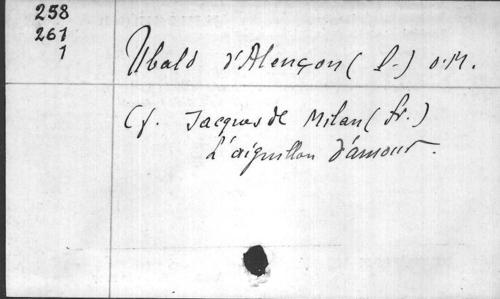 258
261
1
Ubald d'Alençon (P.) O.M.
Cf. Jacques de Milan (fr.)
L'aiguillon d'amour.